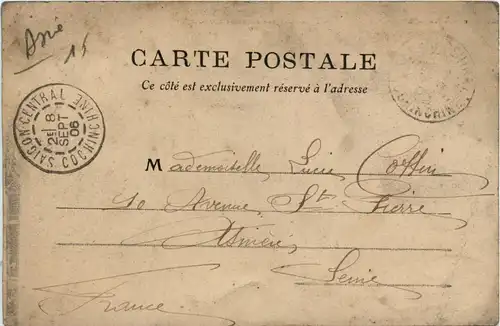 Asie
15
CARTE POSTALE
Ce côté est exclusivement réservé à l'adresse
SAIGON-CENTRAL
COCHINCHINE
8
SEPT
06
Mademoiselle Lucie
10 Avenue Ste Pierre
Asnières
Seine
France